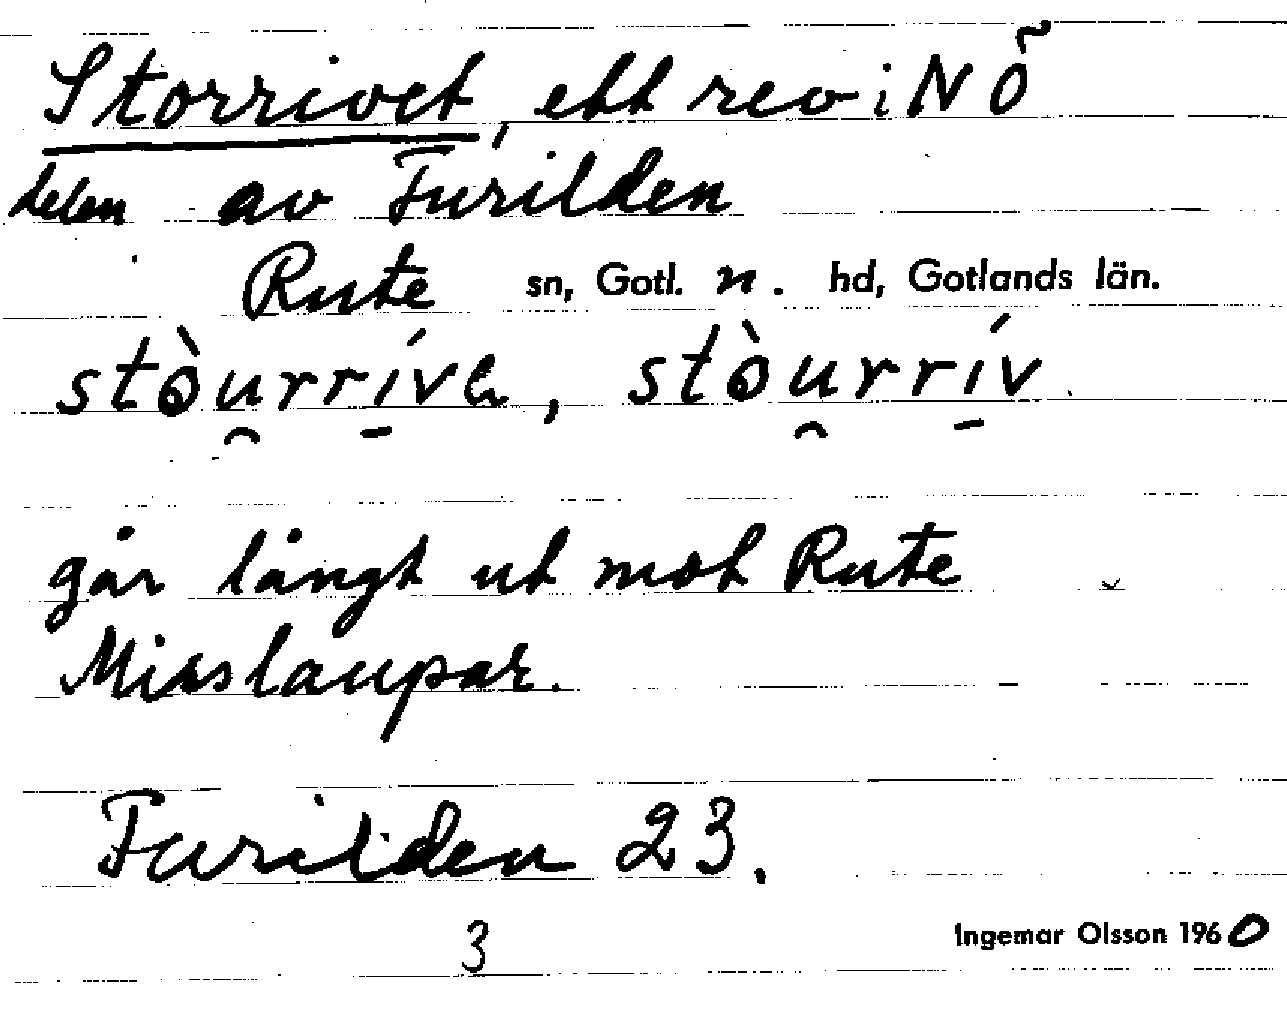 Storrivet, ett rev i NÖ
delen av Furilden
Rute sn, Gotl. n. hd, Gotlands län.
stòu̯rrí̱va, stòu̯rrí̱v.
går långt ut mot Rute
Misslaupar.
Furilden 23.
3
Ingemar Olsson 1960